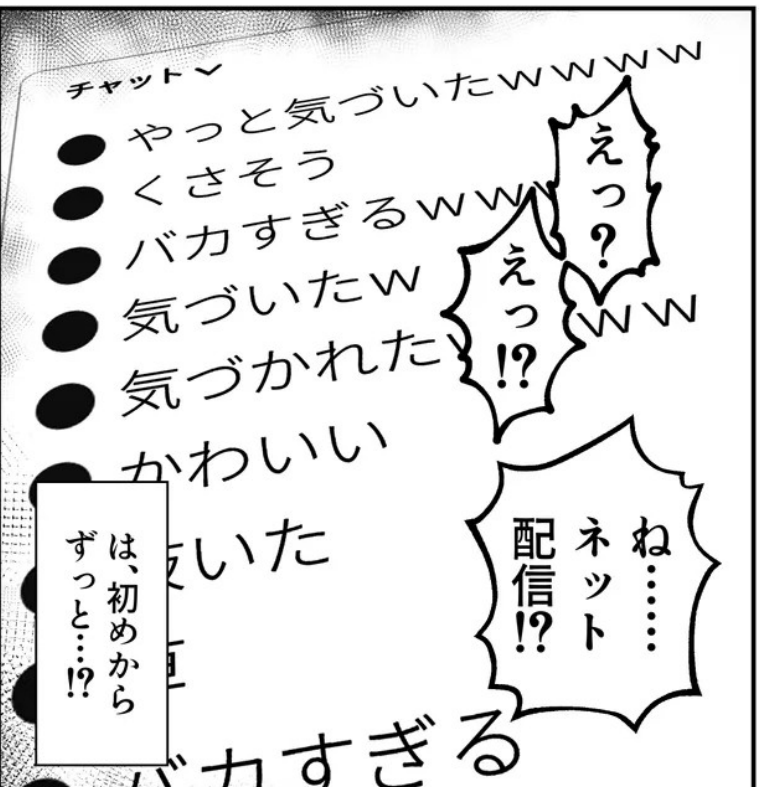 チャット
やっと気づいたｗｗｗｗ
くさそう
バカすぎるｗｗｗ
気づいたｗ
気づかれたｗｗｗ
かわいい
いた
バカすぎる
えっ？
えっ!?
ね……
ネット
配信!?
は、初めから
ずっと…!?